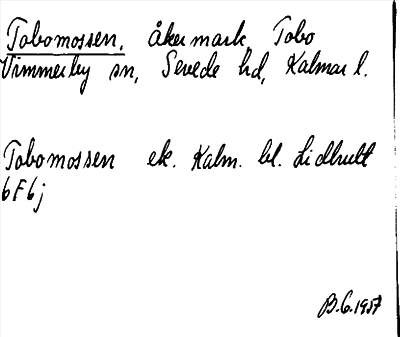 Tobomossen, åkermark, Tobo
Vimmerby sn, Sevede hd, Kalmar l.
Tobomossen ek. Kalm. bl. Lidhult
6F6j
B.G. 1957